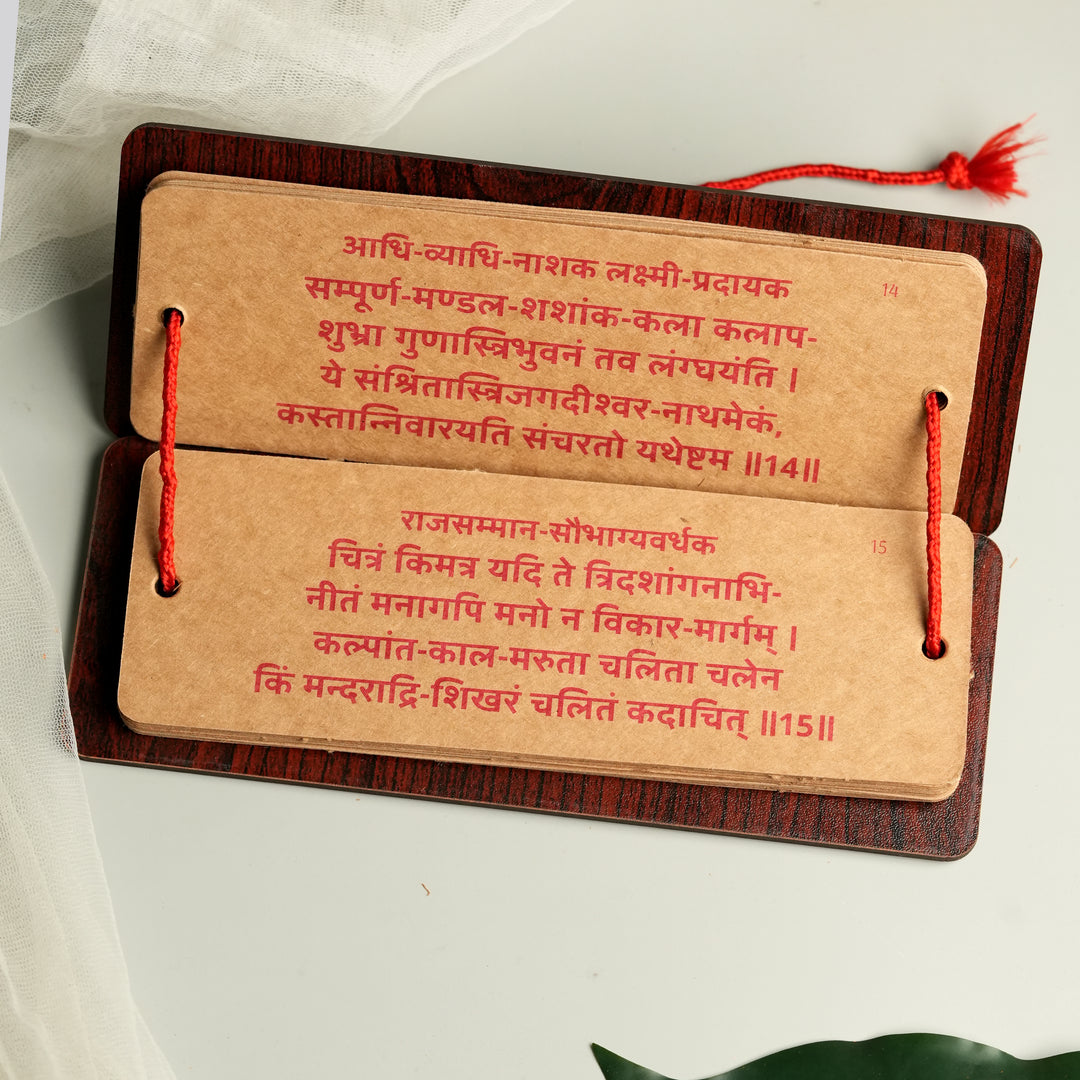 आधि-व्याधि-नाशक लक्ष्मी-प्रदायक
14
सम्पूर्ण-मण्डल-शशांक-कला कलाप-
शुभ्रा गुणास्त्रिभुवनं तव लंग्घयंति |
ये संश्रितास्त्रिजगदीश्वर-नाथमेकं,
कस्तान्निवारयति संचरतो यथेष्टम ||14||
राजसम्मान-सौभाग्यवर्धक
15
चित्रं किमत्र यदि ते त्रिदशांगनाभि-
नीतं मनागपि मनो न विकार-मार्गम् |
कल्पांत-काल-मरुता चलिता चलेन
किं मन्दराद्रि-शिखरं चलितं कदाचित् ||15||